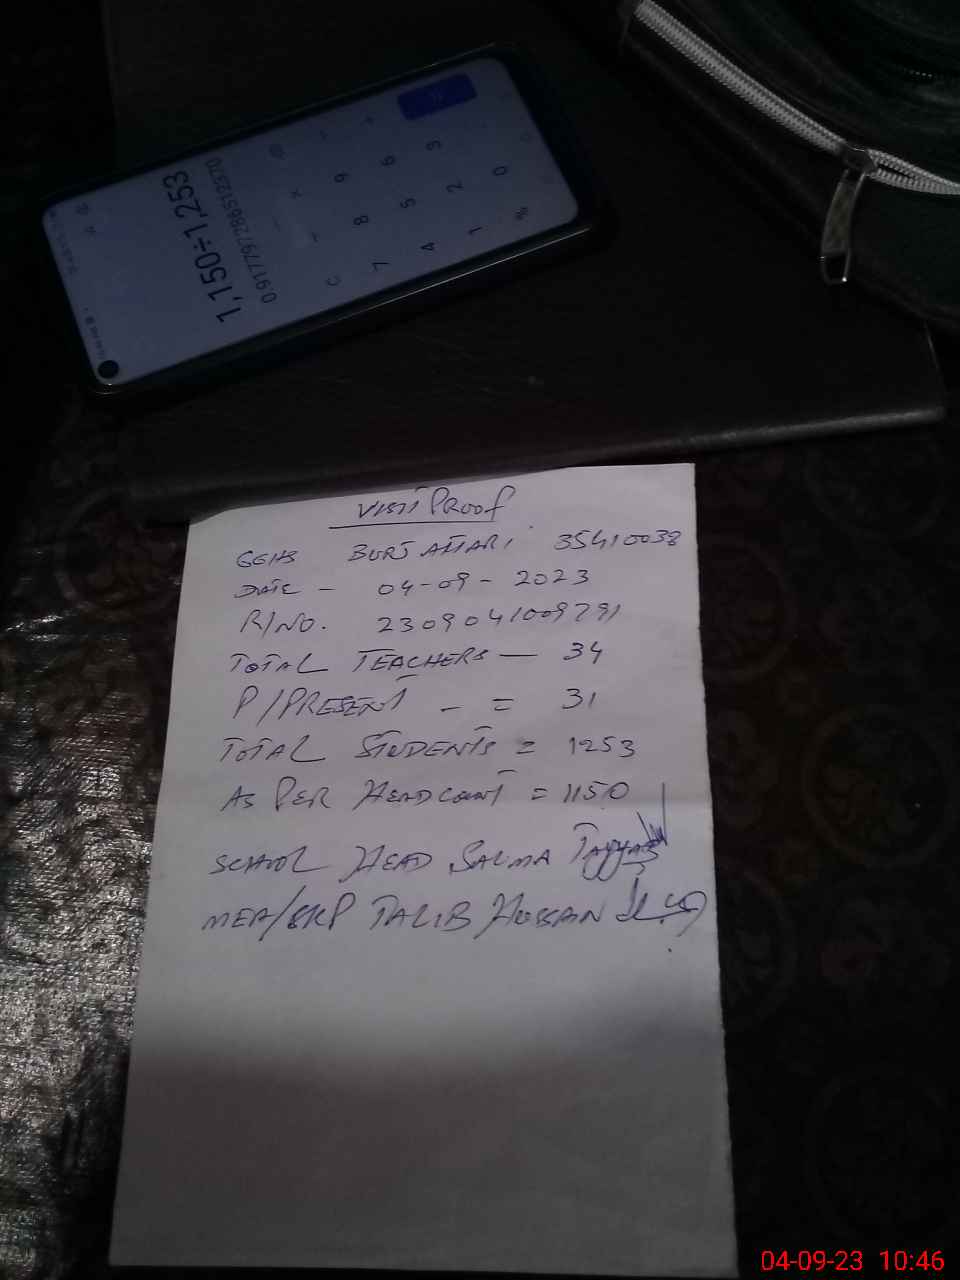 1,150÷1,253
0.917797286512370
C ÷ ×
7 8 9 −
4 5 6 +
1 2 3
% 0 .
VISIT PROOF
GGHS BURJ ATTARI 35410038
DATE - 04-09-2023
R/NO. 2309041009791
TOTAL TEACHERS — 34
P/PRESENT - = 31
TOTAL STUDENTS = 1253
AS PER HEADCOUNT = 1150
SCHOOL HEAD SALMA TAYYAB
MEA/ TALIB HUSSAIN
04-09-23 10:46